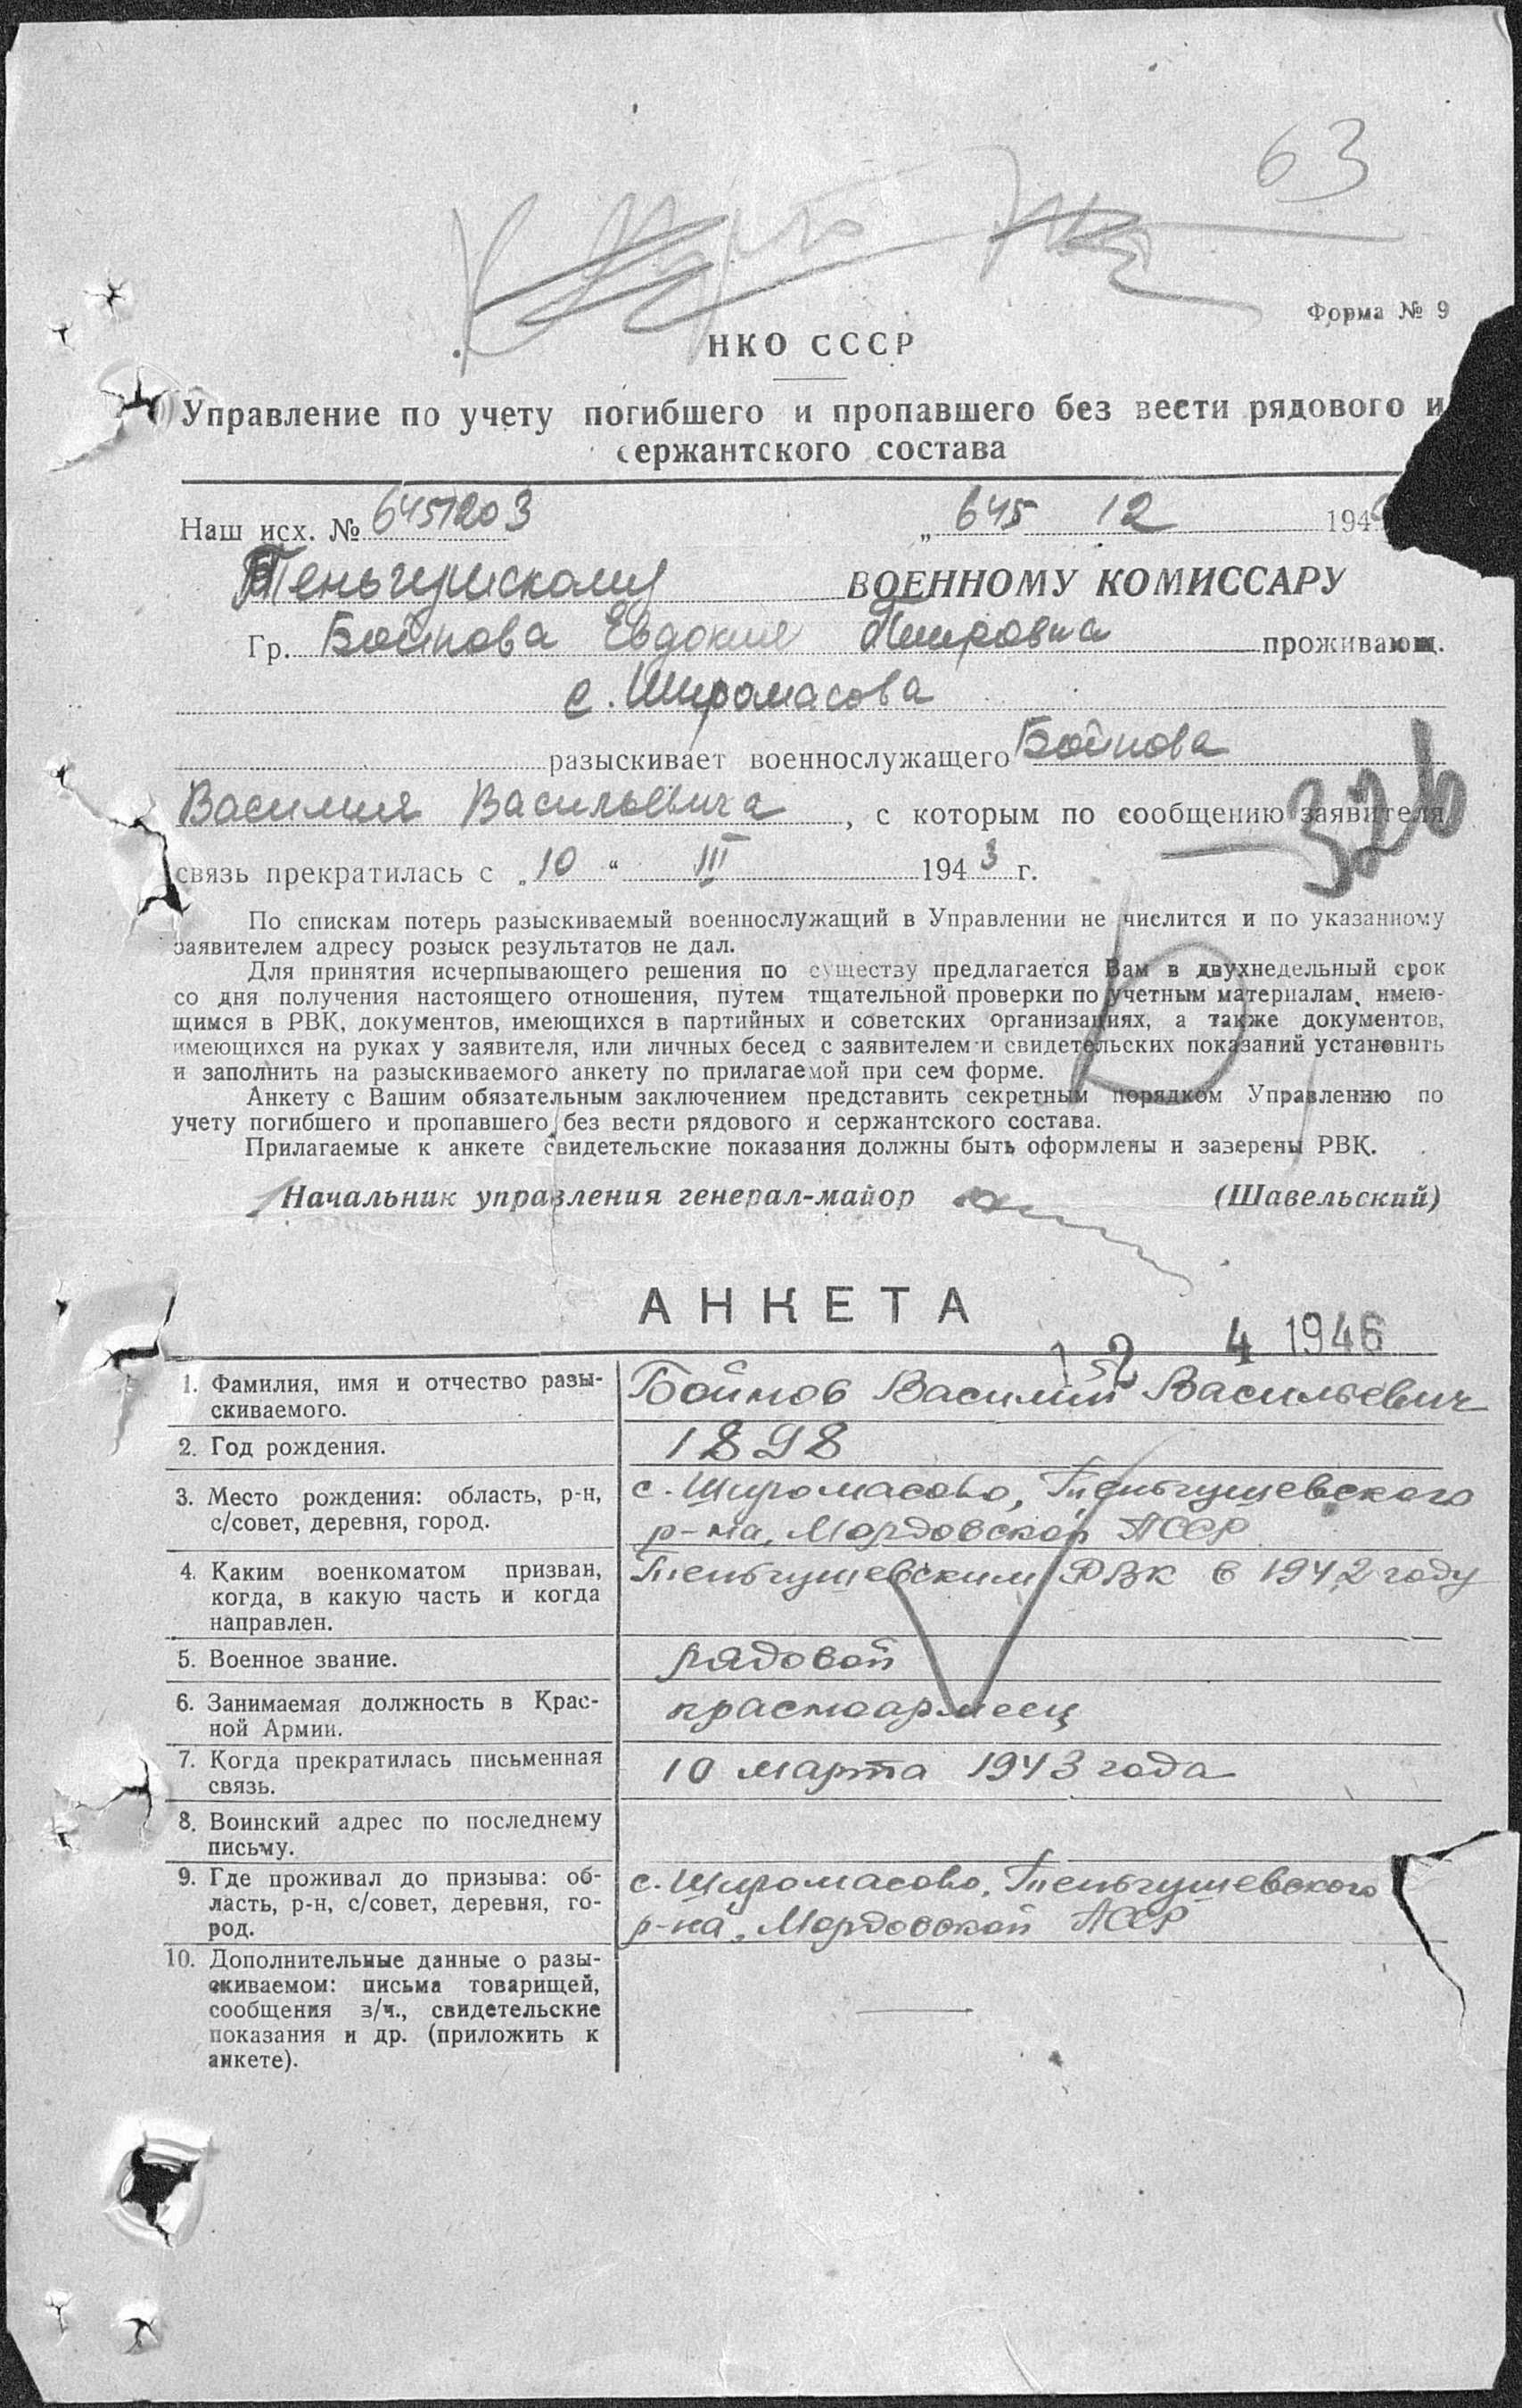 63
Форма № 9
НКО СССР
Управление по учету погибшего и пропавшего без вести рядового и
сержантского состава
Наш исх. № 6451203 „ 645 12 194
Теньгушскому ВОЕННОМУ КОМИССАРУ
Гр. Бойнова Евдокия проживающ.
с. Широмасова
разыскивает военнослужащего Бойнова
Василия Васильевича, с которым по сообщению заявителя
326
связь прекратилась с „10 “ III 1943 г.
По спискам потерь разыскиваемый военнослужащий в Управлении не числится и по указанному
заявителем адресу розыск результатов не дал.
Для принятия исчерпывающего решения по существу предлагается Вам в двухнедельный срок
со дня получения настоящего отношения, путем тщательной проверки по учетным материалам, имею-
щимся в РВК, документов, имеющихся в партийных и советских организациях, а также документов,
имеющихся на руках у заявителя, или личных бесед с заявителем и свидетельских показаний установить
и заполнить на разыскиваемого анкету по прилагаемой при сем форме.
Анкету с Вашим обязательным заключением представить секретным порядком Управлению по
учету погибшего и пропавшего без вести рядового и сержантского состава.
Прилагаемые к анкете свидетельские показания должны быть оформлены и заверены РВК.
Начальник управления генерал-майор (Шавельский)
АНКЕТА
12 4 1946
1. Фамилия, имя и отчество разы-
скиваемого.
Бойнов Василий Васильевич
2. Год рождения.
1898
3. Место рождения: область, р-н,
с/совет, деревня, город.
с. Широмасово, Теньгушевского
р-на, Мордовской АССР
4. Каким военкоматом призван,
когда, в какую часть и когда
направлен.
Теньгушевским РВК в 1942 году
5. Военное звание.
рядовой
6. Занимаемая должность в Крас-
ной Армии.
красноармеец
7. Когда прекратилась письменная
связь.
10 марта 1943 года
8. Воинский адрес по последнему
письму.
9. Где проживал до призыва: об-
ласть, р-н, с/совет, деревня, го-
род.
с. Широмасово, Теньгушевского
р-на, Мордовской АССР
10. Дополнительные данные о разы-
скиваемом: письма товарищей,
сообщения з/ч., свидетельские
показания и др. (приложить к
анкете).